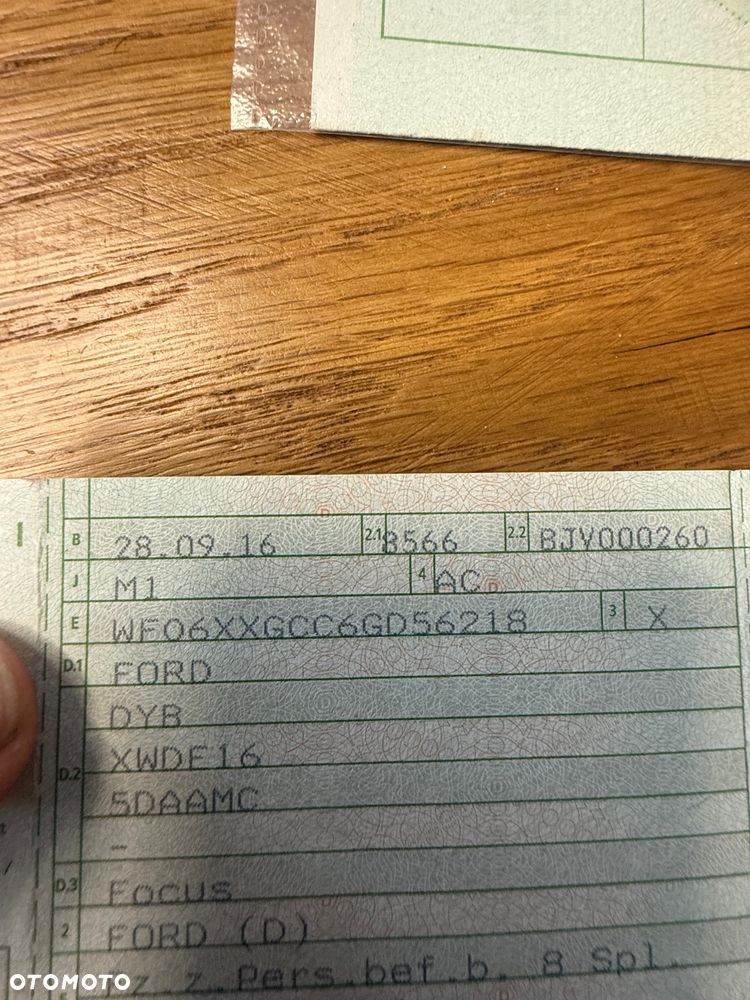 B 28.09.16 2.1 8566 2.2 BJV000260
J M1 4 AC
E WF06XXGCC6GD56218 3 X
D.1 FORD
DYB
XWDE16
D.2
5DAAMC
–
D.3 Focus
2 FORD (D)
Fz.z.Pers.bef.b. 8 Spl.
OTOMOTO